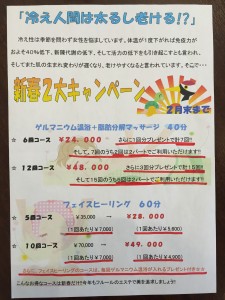 「冷え人間は太るし老ける!?」
冷え性は季節を問わず女性を悩ましています。体温が1度下がれば免疫力が
およそ40%低下、新陳代謝の低下、そして活力の低下をも引き起こすとも言われ、
そしてまた肌の生まれ変わりが遅くなり、老けやすくなると言われています。そこで・・・
新春2大キャンペーン
2月末まで
ゲルマニウム温浴+脂肪分解マッサージ 40分
☆ 6回コース ¥24.000 さらに1回分プレゼントで計7回!!
そして、7回のうち2回は2パートでご利用いただけます!!
☆ 12回コース ¥48.000 さらに3回分プレゼントで計15回!!
そして15回のうち5回は2パートでご利用いただけます!!
フェイスヒーリング 60分
☆ 5回コース ¥35,000 → ¥28.000
(1回あたり¥7,000) (1回あたり¥5,600)
☆ 10回コース ¥70,000 → ¥49.000
(1回あたり¥7,000) (1回あたり¥4,900)
さらに、フェイスヒーリングのコースには、毎回ゲルマニウム温浴が入れるプレゼント付き☆☆
こんなお得なコースは新春だけ!今年もフルールのエステで美を追求しましょ!